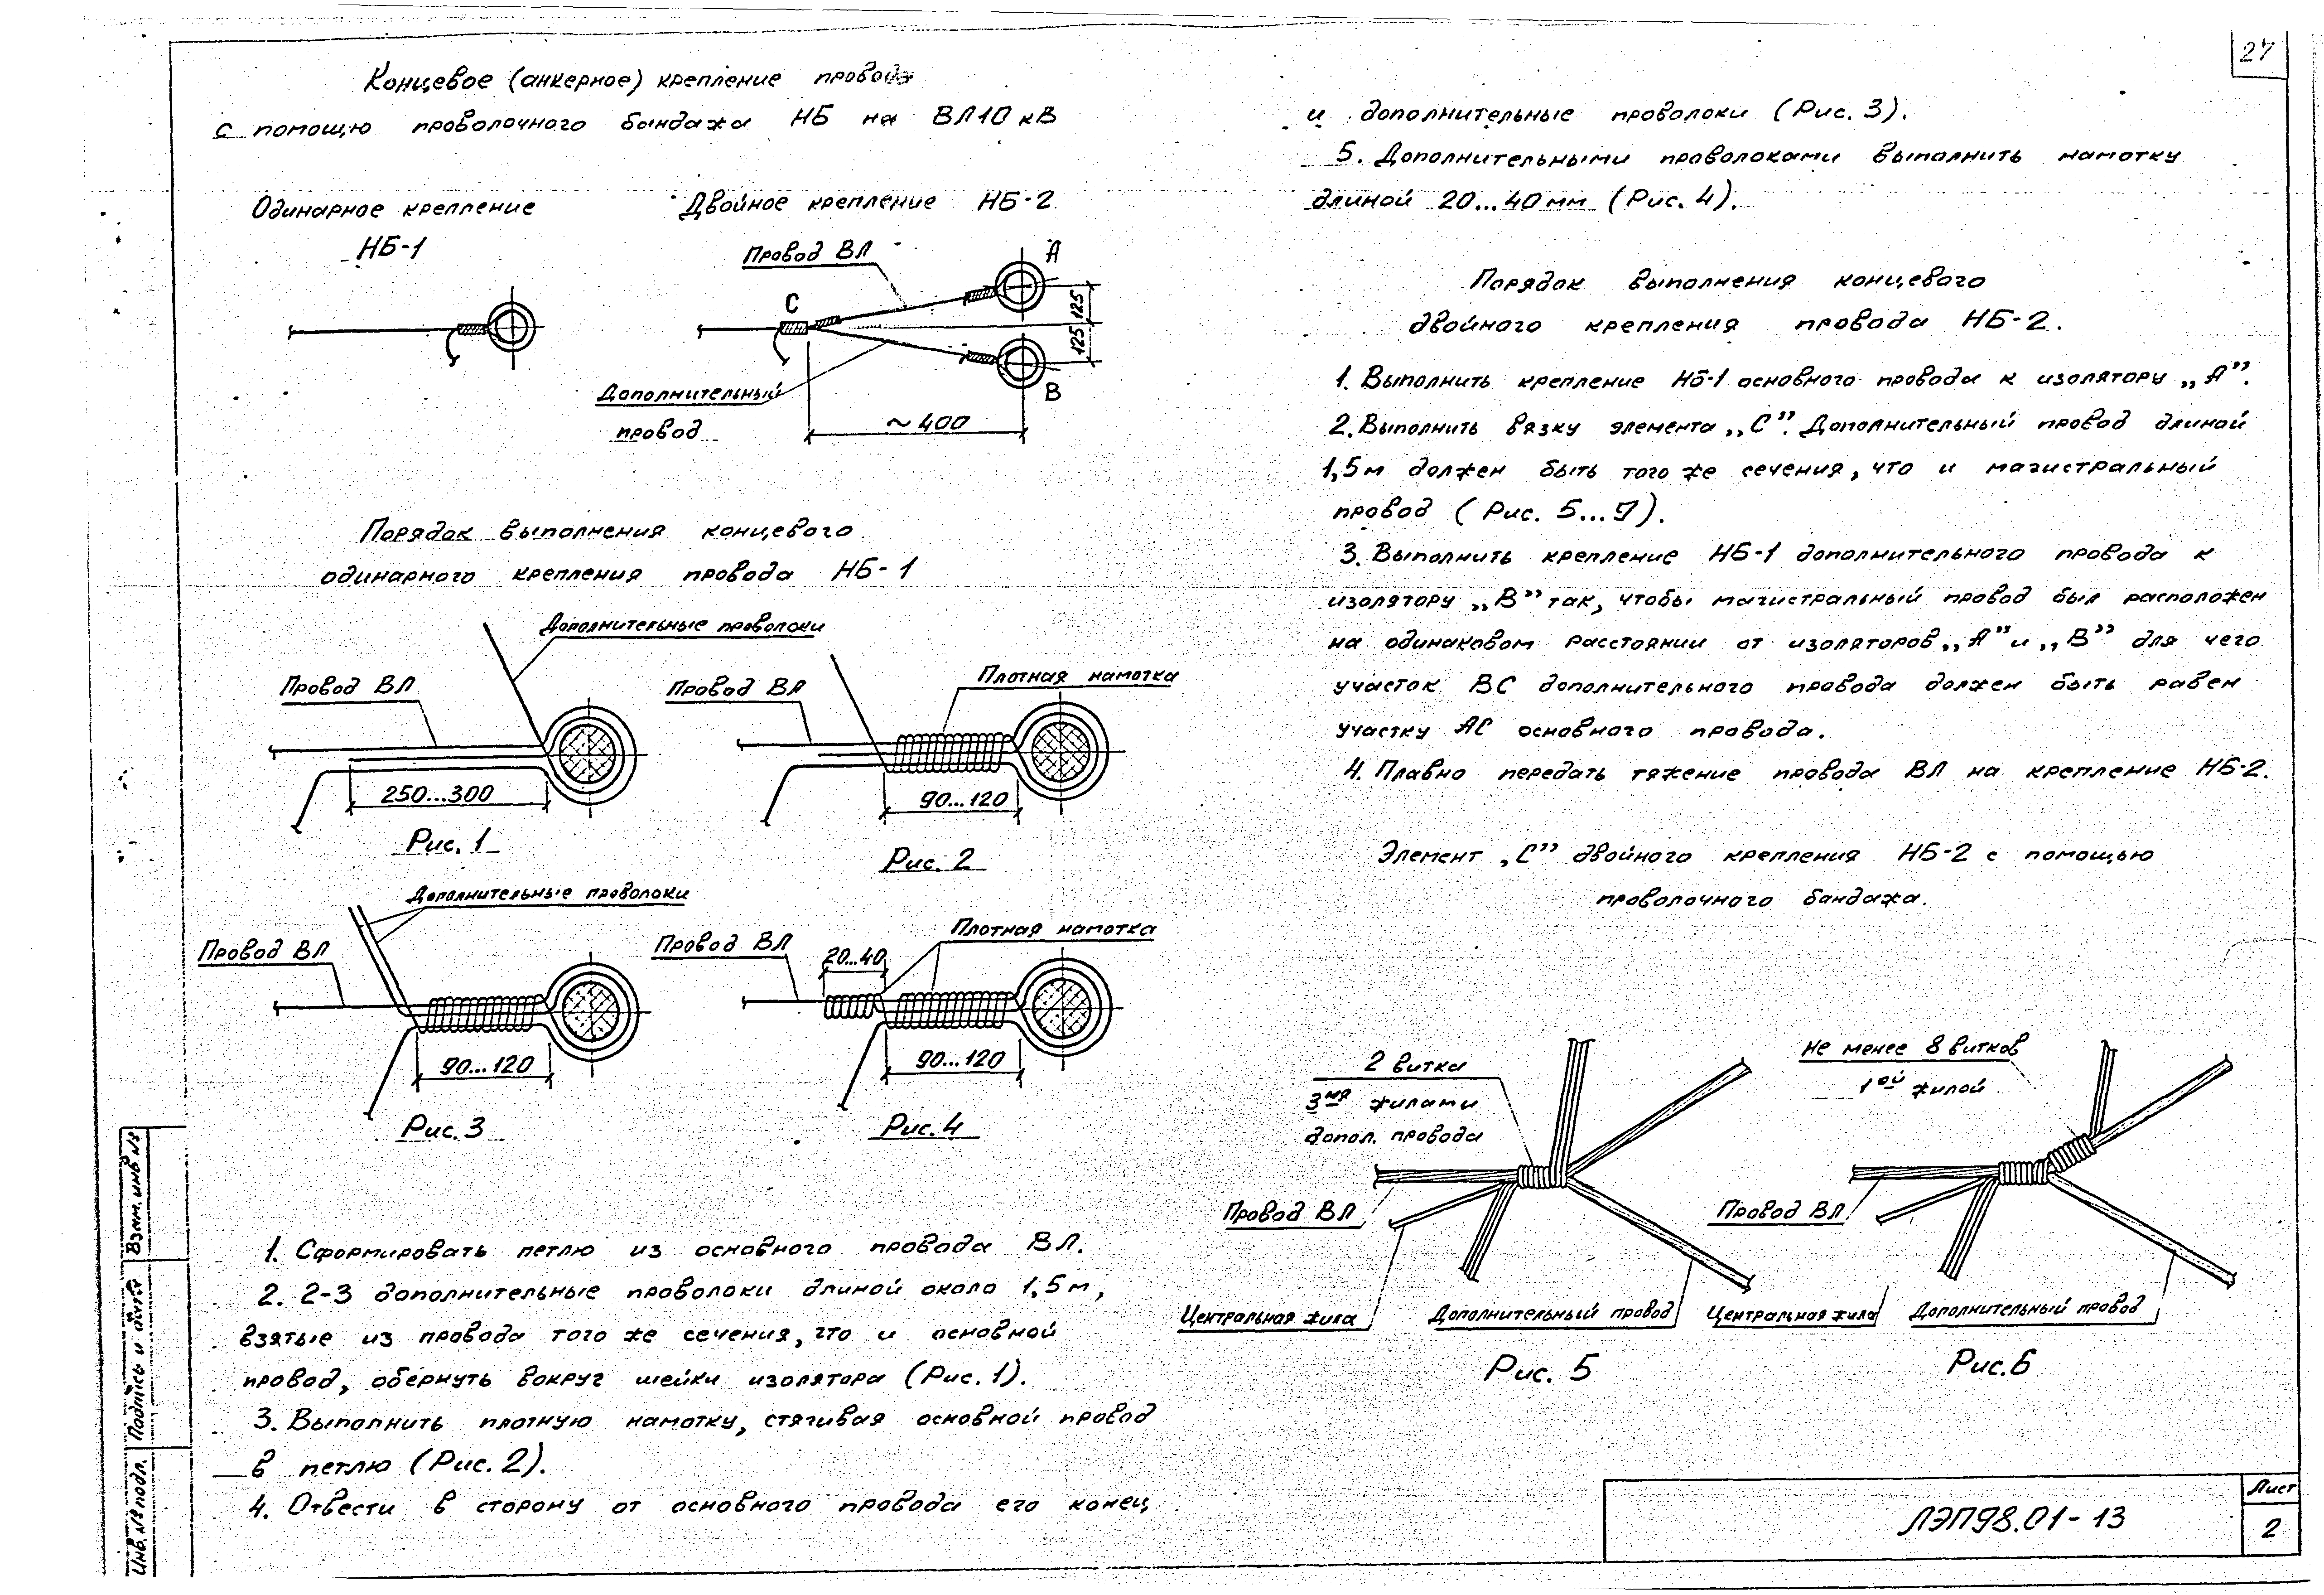 27
Концевое (анкерное) крепление провода
с помощю проволочного бандажа НБ на ВЛ10 кВ
Одинарное крепление
НБ-1
Двойное крепление НБ-2
Провод ВЛ
А
С
125
125
В
Дополнительный
провод
~400
Порядок выполнения концевого
одинарного крепления провода НБ-1
Дополнительные проволоки
Провод ВЛ
250...300
Рис. 1
Провод ВЛ
Плотная намотка
90...120
Рис. 2
Дополнительные проволоки
Провод ВЛ
90...120
Рис. 3
Провод ВЛ
20...40
Плотная намотка
90...120
Рис. 4
1. Сформировать петлю из основного провода ВЛ.
2. 2-3 дополнительные проволоки длиной около 1,5 м,
взятые из провода того же сечения, что и основной
провод, обернуть вокруг шейки изолятора (Рис. 1).
3. Выполнить плотную намотку, стягивая основной провод
в петлю (Рис. 2).
4. Отвести в сторону от основного провода его конец
и дополнительные проволоки (Рис. 3).
5. Дополнительными проволоками выполнить намотку
длиной 20...40 мм (Рис. 4).
Порядок выполнения концевого
двойного крепления провода НБ-2.
1. Выполнить крепление НБ-1 основного провода к изолятору „А”.
2. Выполнить вязку элемента „С”. Дополнительный провод длиной
1,5 м должен быть того же сечения, что и магистральный
провод (Рис. 5...9).
3. Выполнить крепление НБ-1 дополнительного провода к
изолятору „В” так, чтобы магистральный провод был расположен
на одинаковом расстоянии от изоляторов „А” и „В” для чего
участок ВС дополнительного провода должен быть равен
участку АС основного провода.
4. Плавно передать тяжение провода ВЛ на крепление НБ-2.
Элемент „С” двойного крепления НБ-2 с помощью
проволочного бандажа.
2 витка
3мя жилами
допол. провода
Провод ВЛ
Центральная жила
Дополнительный провод
Рис. 5
Не менее 8 витков
1ой жилой
Провод ВЛ
Центральная жила
Дополнительный провод
Рис. 6
Взам. инв №
Подпись и дата
Инв. № подл.
ЛЭП98.01-13
Лист
2